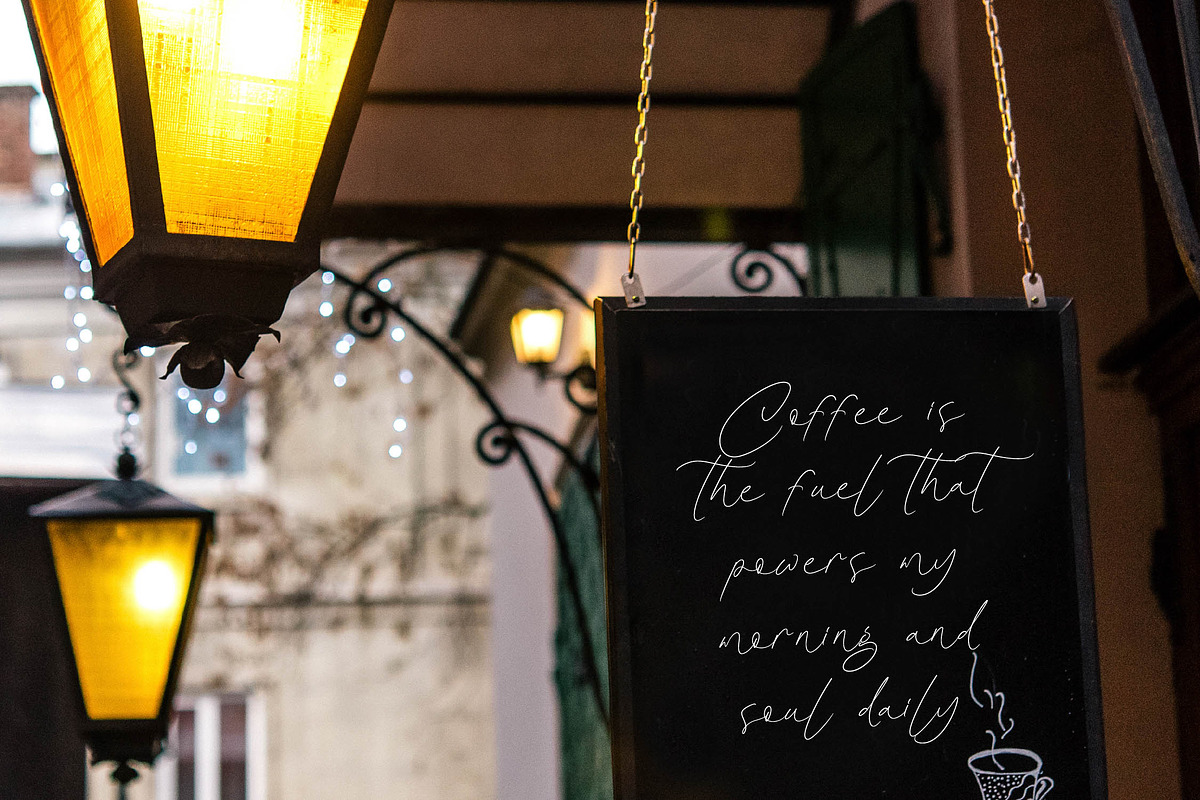 Coffee is
the fuel that
powers my
morning and
soul daily